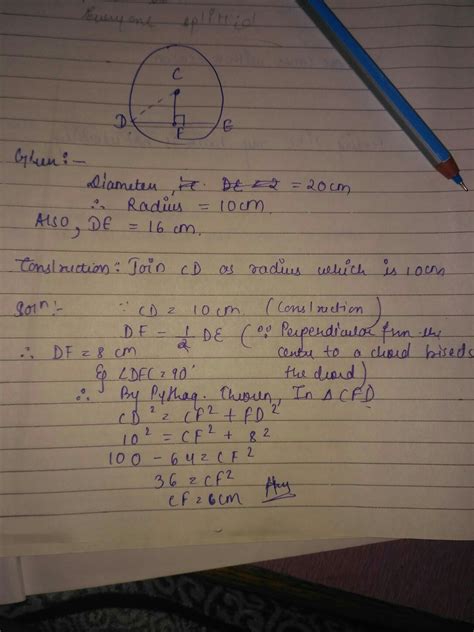 Everyone
C
D F E
Given:-
Diameter, = 20cm
∴ Radius = 10cm.
Also, DE = 16 cm.
Construction: Join CD as radius which is 10cm
Soln:- ∵ CD = 10cm. (Construction)
DF = 1/2 DE (∵ Perpendicular from the
∴ DF = 8 cm centre to a chord bisects
∠DFC = 90° the chord)
∴ By Pythag. Theorem, In △ CFD
CD² = CF² + FD²
10² = CF² + 8²
100 - 64 = CF²
36 = CF²
CF = 6cm Ans